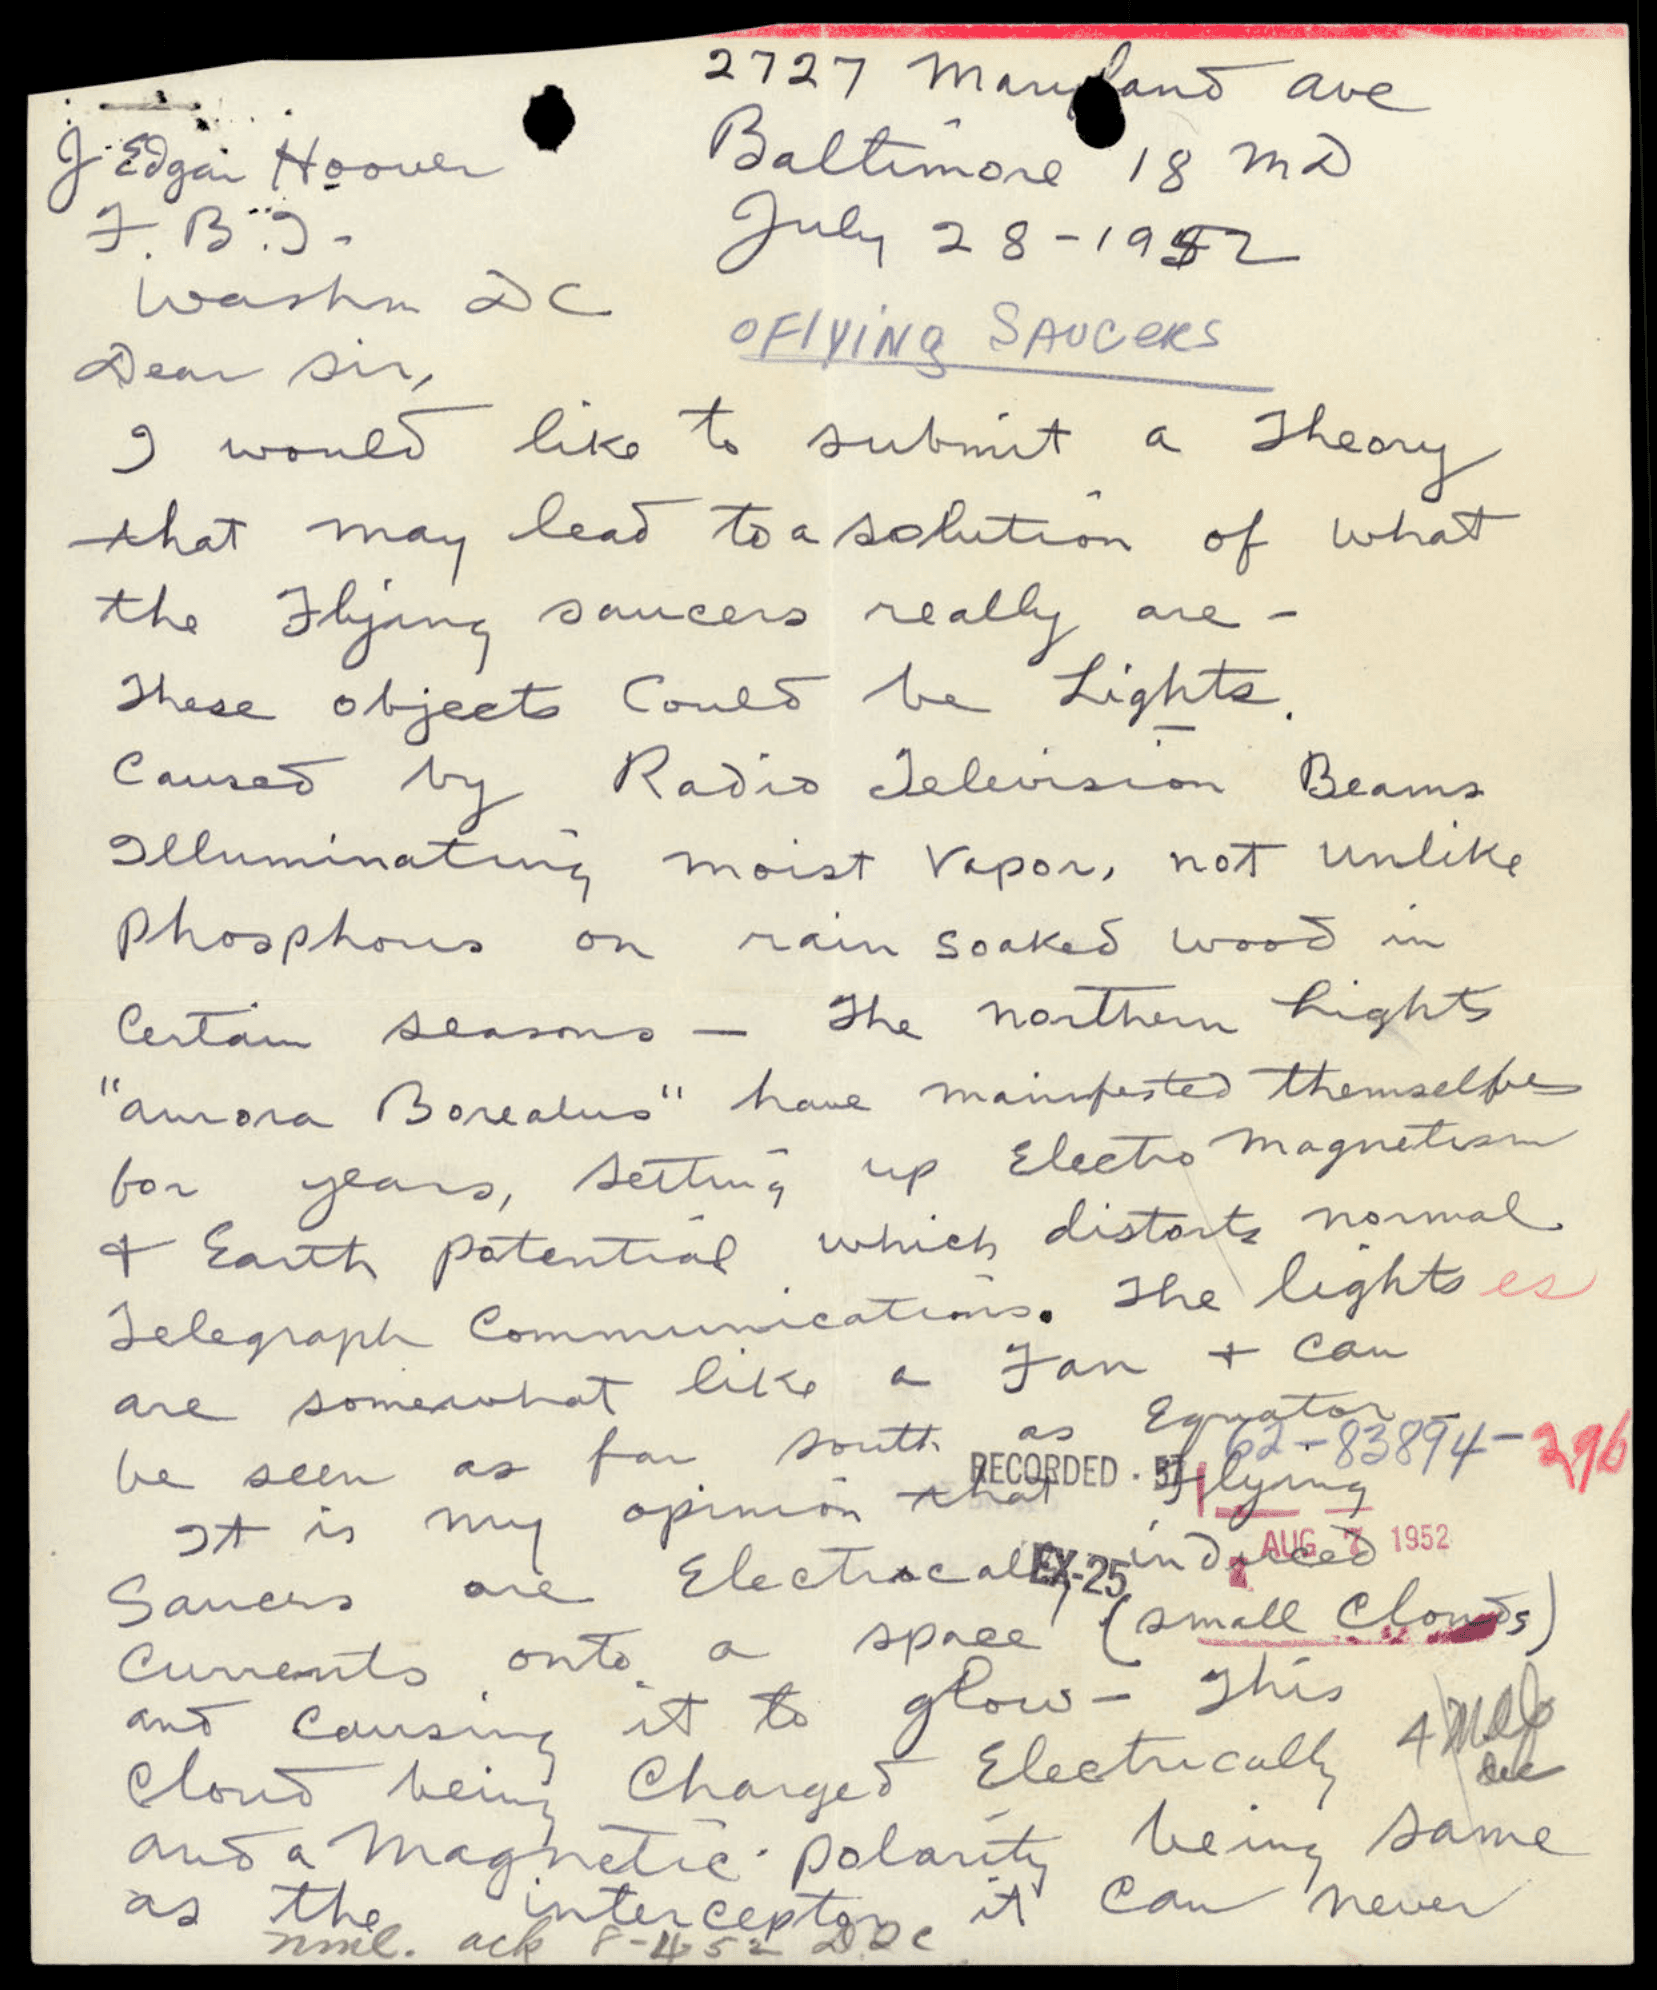 2727 Maryland Ave
Baltimore 18 MD
July 28-1952
J Edgar Hoover
F.B.I-
Washn DC
Flying Saucers
Dear Sir,
I would like to submit a Theory
that may lead to a solution of what
the Flying saucers really are -
These objects Could be Lights.
Caused by Radio Television Beams
Illuminating moist Vapor, not unlike
Phosphorus on rain soaked wood in
Certain seasons - The northern Lights
"aurora Borealus" have mainfested themselfes
for years, setting up Electro Magnetism
+ Earth potential which distorts normal
Telegraph Communications. The lights es
are somewhat like a Fan + can
be seen as far south as Equator -
62-83894-296
RECORDED
It is my opinion that Flying
AUG 7 1952
Saucers are Electrically induced
EX-25
Currents onto a space (small Clouds)
and causing it to glow - This
Cloud being Charged Electrically
and a Magnetic polarity being same
as the interceptor it can never
ack 8-4-52